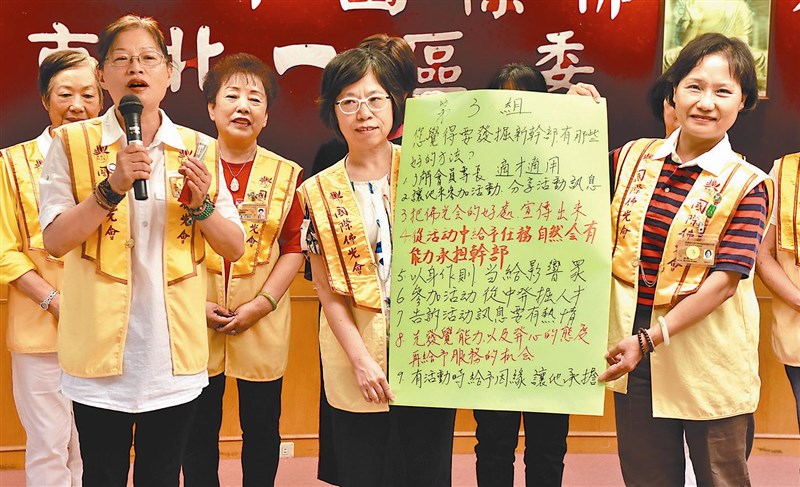 國際佛
市北一區委
第3組
您覺得要發掘新幹部有那些
好的方法？
1了解會員專長 適才適用
2讓他來參加活動 分享活動訊息
3把佛光会的好處宣傳出來
4從活动中給予任務自然会有
能力承担幹部
5以身作則 當給影響眾
6參加活动 從中發掘人才
7告訴活动訊息要有熱情
8先發覺能力以及發心的態度
再給予服務的机会
9有活動時給予因緣 讓他承擔
國際佛光會
國際佛光會